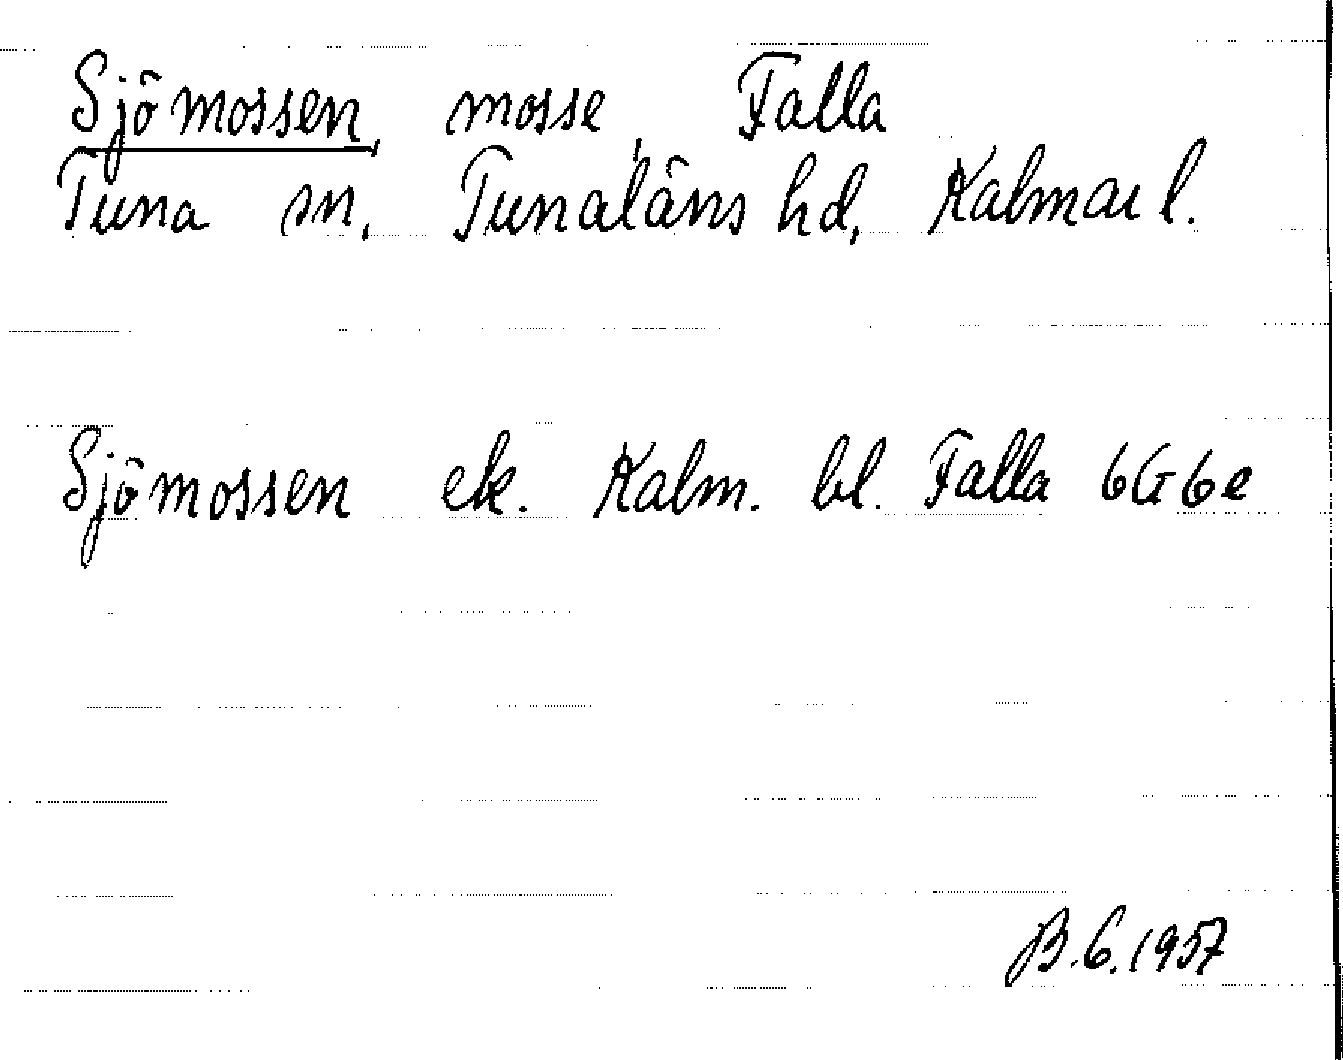 Sjömossen, mosse, Falla
Tuna sn, Tunaläns hd, Kalmar l.
Sjömossen ek. Kalm. bl. Falla 6G6e
B.G.1957